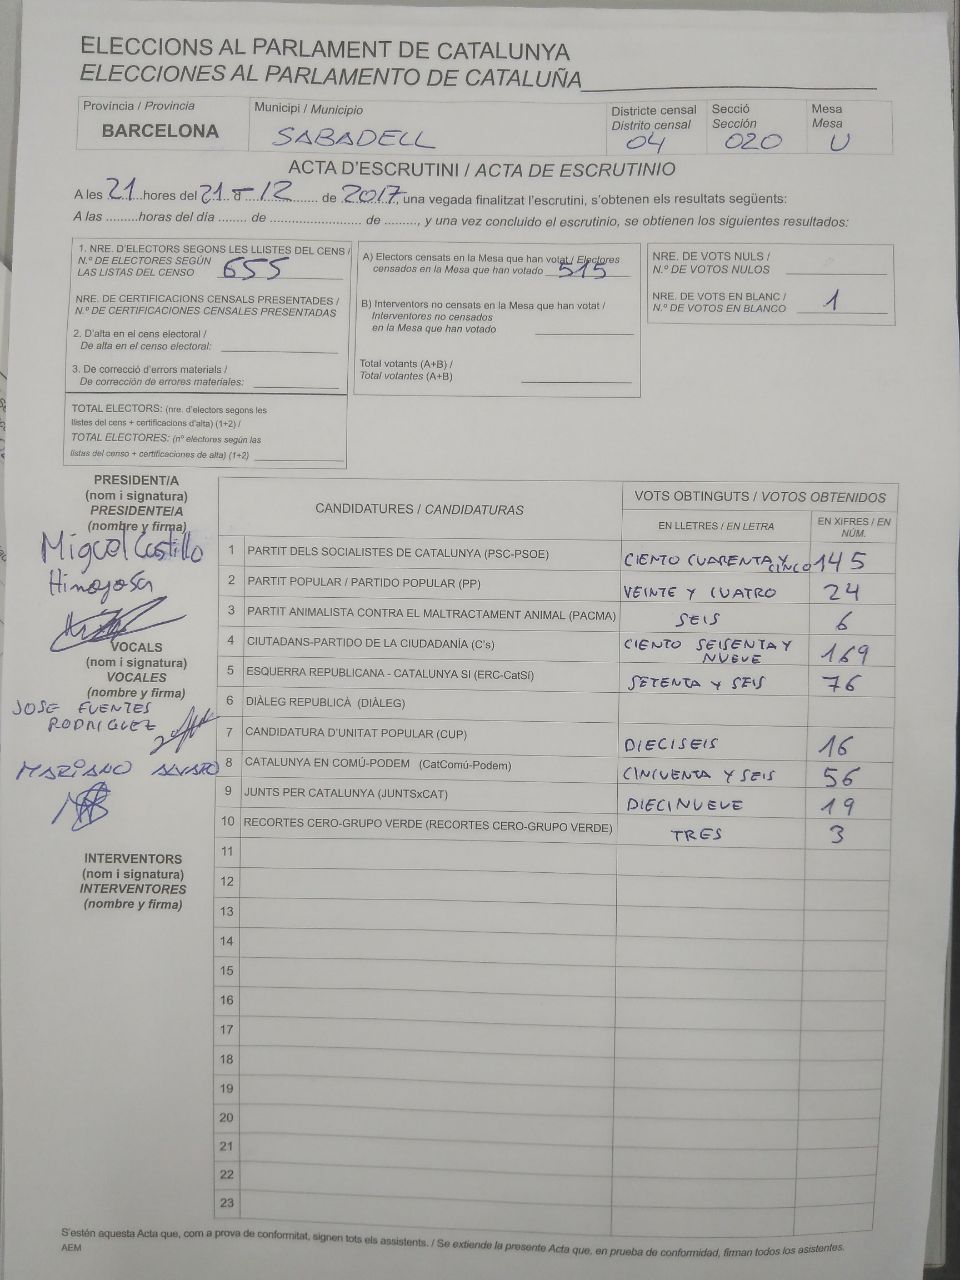 ELECCIONS AL PARLAMENT DE CATALUNYA
ELECCIONES AL PARLAMENTO DE CATALUÑA
Província / Provincia
BARCELONA
Municipi / Municipio
SABADELL
Districte censal
Distrito censal
04
Secció
Sección
020
Mesa
Mesa
U
ACTA D'ESCRUTINI / ACTA DE ESCRUTINIO
A les 21 hores del 21 d - 12 de 2017, una vegada finalitzat l'escrutini, s'obtenen els resultats següents:
A las .........horas del día ........ de ........................ de ........., y una vez concluido el escrutinio, se obtienen los siguientes resultados:
1. NRE. D'ELECTORS SEGONS LES LLISTES DEL CENS /
N.º DE ELECTORES SEGÚN
LAS LISTAS DEL CENSO 655
NRE. DE CERTIFICACIONS CENSALS PRESENTADES /
N.º DE CERTIFICACIONES CENSALES PRESENTADAS
2. D'alta en el cens electoral /
De alta en el censo electoral:
3. De correcció d'errors materials /
De corrección de errores materiales:
TOTAL ELECTORS: (nre. d'electors segons les
llistes del cens + certificacions d'alta) (1+2) /
TOTAL ELECTORES: (nº electores según las
listas del censo + certificaciones de alta) (1+2)
A) Electors censats en la Mesa que han votat / Electores
censados en la Mesa que han votado 515
B) Interventors no censats en la Mesa que han votat /
Interventores no censados
en la Mesa que han votado
Total votants (A+B) /
Total votantes (A+B)
NRE. DE VOTS NULS /
N.º DE VOTOS NULOS
NRE. DE VOTS EN BLANC /
N.º DE VOTOS EN BLANCO 1
PRESIDENT/A
(nom i signatura)
PRESIDENTE/A
(nombre y firma)
Miguel Castillo
Hinojosa
VOCALS
(nom i signatura)
VOCALES
(nombre y firma)
JOSE FUENTES
RODRIGUEZ
MARIANO ALVARO
INTERVENTORS
(nom i signatura)
INTERVENTORES
(nombre y firma)
CANDIDATURES / CANDIDATURAS
VOTS OBTINGUTS / VOTOS OBTENIDOS
EN LLETRES / EN LETRA
EN XIFRES / EN
NÚM.
1 PARTIT DELS SOCIALISTES DE CATALUNYA (PSC-PSOE) CIENTO CUARENTA Y CINCO 145
2 PARTIT POPULAR / PARTIDO POPULAR (PP) VEINTE Y CUATRO 24
3 PARTIT ANIMALISTA CONTRA EL MALTRACTAMENT ANIMAL (PACMA) SEIS 6
4 CIUTADANS-PARTIDO DE LA CIUDADANÍA (C's) CIENTO SEISENTA Y NUEVE 169
5 ESQUERRA REPUBLICANA - CATALUNYA SI (ERC-CatSí) SETENTA Y SEIS 76
6 DIÀLEG REPUBLICÀ (DIÀLEG)
7 CANDIDATURA D'UNITAT POPULAR (CUP) DIECISEIS 16
8 CATALUNYA EN COMÚ-PODEM (CatComú-Podem) CINCUENTA Y SEIS 56
9 JUNTS PER CATALUNYA (JUNTSxCAT) DIECINUEVE 19
10 RECORTES CERO-GRUPO VERDE (RECORTES CERO-GRUPO VERDE) TRES 3
11
12
13
14
15
16
17
18
19
20
21
22
23
S'estén aquesta Acta que, com a prova de conformitat, signen tots els assistents. / Se extiende la presente Acta que, en prueba de conformidad, firman todos los asistentes.
AEM